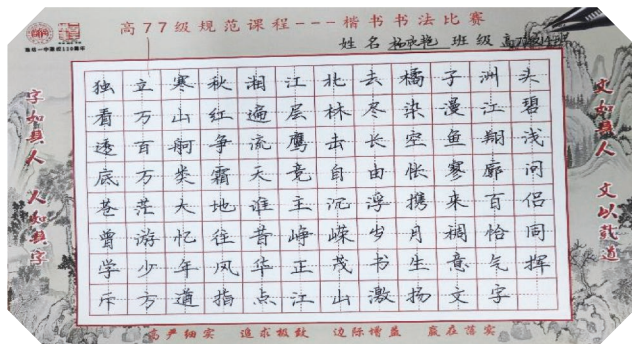 高77级规范课程---楷书书法比赛
姓名 班级 高77级
字如其人 人如其字
独立寒秋湘江北去橘子洲头
看万山红遍层林尽染漫江碧
透百舸争流鹰击长空鱼翔浅
底万类霜天竞自由怅寥廓问
苍茫大地谁主沉浮携来百侣
曾游忆往昔峥嵘岁月稠恰同
学少年风华正茂书生意气挥
斥方遒指点江山激扬文字
文如其人 文以载道
高严细实 追求极致 边际增益 赢在落实